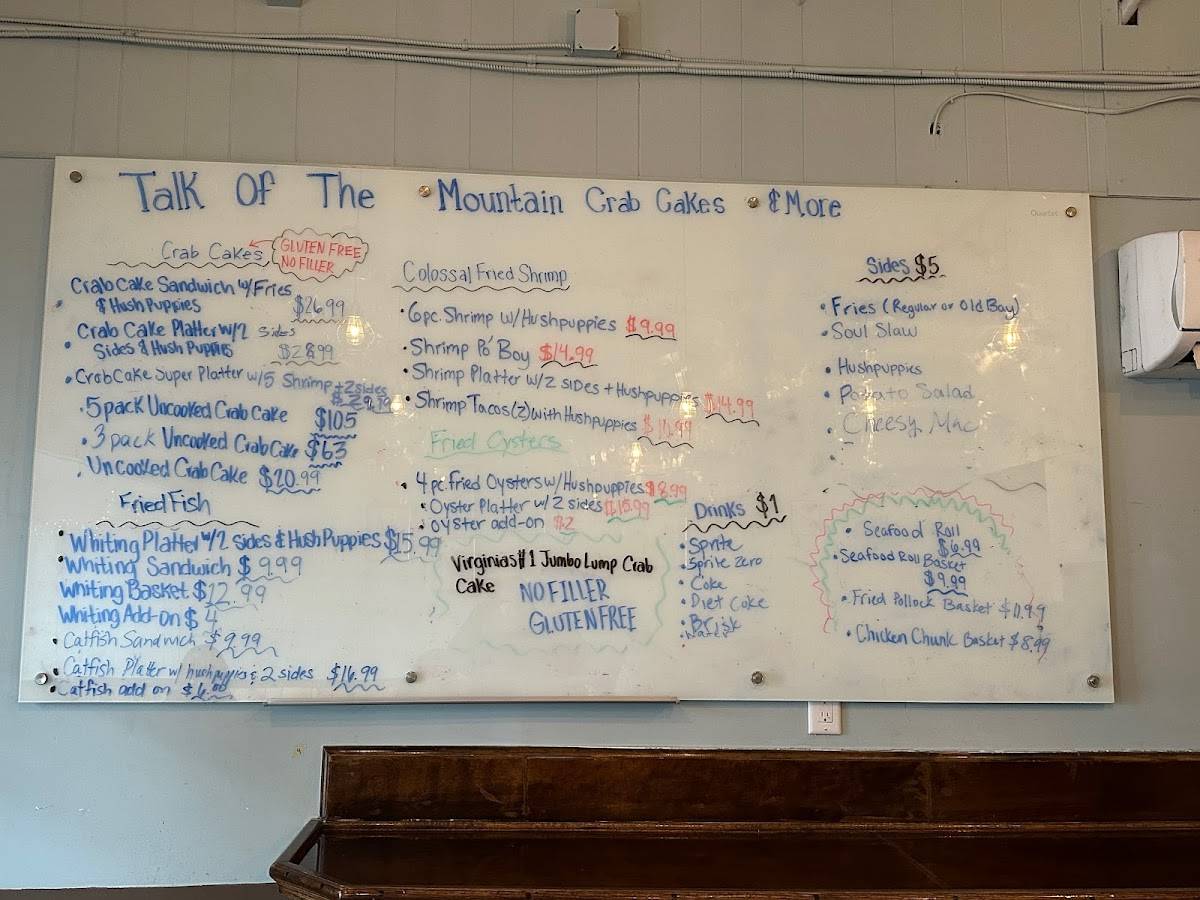 Talk Of The Mountain Crab Cakes & More
Quartet
Crab Cakes
GLUTEN FREE
NO FILLER
Crab Cake Sandwich w/Fries
& Hush Puppies $26.99
Crab Cake Platter w/2 sides
Sides & Hush Puppies $28.99
Crab Cake Super Platter w/5 Shrimp + 2 sides
5 pack Uncooked Crab Cake $105
3 pack Uncooked Crab Cake $63
Uncooked Crab Cake $20.99
Fried Fish
Whiting Platter w/2 sides & Hush Puppies $15.99
Whiting Sandwich $9.99
Whiting Basket $12.99
Whiting Add-on $4
Catfish Sandwich $9.99
Catfish Platter w/ hushpuppies & 2 sides $16.99
Catfish add on $6.00
Colossal Fried Shrimp
6pc. Shrimp w/Hushpuppies $9.99
Shrimp Po' Boy $14.99
Shrimp Platter w/2 sides + Hushpuppies $14.99
Shrimp Tacos (2) with Hushpuppies
Fried Oysters
4 pc. Fried Oysters w/Hushpuppies $8.99
Oyster Platter w/2 sides $15.99
oyster add-on $2
Virginias #1 Jumbo Lump Crab
Cake
NO FILLER
GLUTEN FREE
Drinks $1
Sprite
Sprite Zero
Coke
Diet Coke
Brisk
Water
Sides $5
Fries (Regular or Old Bay)
Soul Slaw
Hushpuppies
Potato Salad
Cheesy Mac
Seafood Roll
$6.99
Seafood Roll Basket
$9.99
Fried Pollock Basket $11.99
Chicken Chunk Basket $8.99